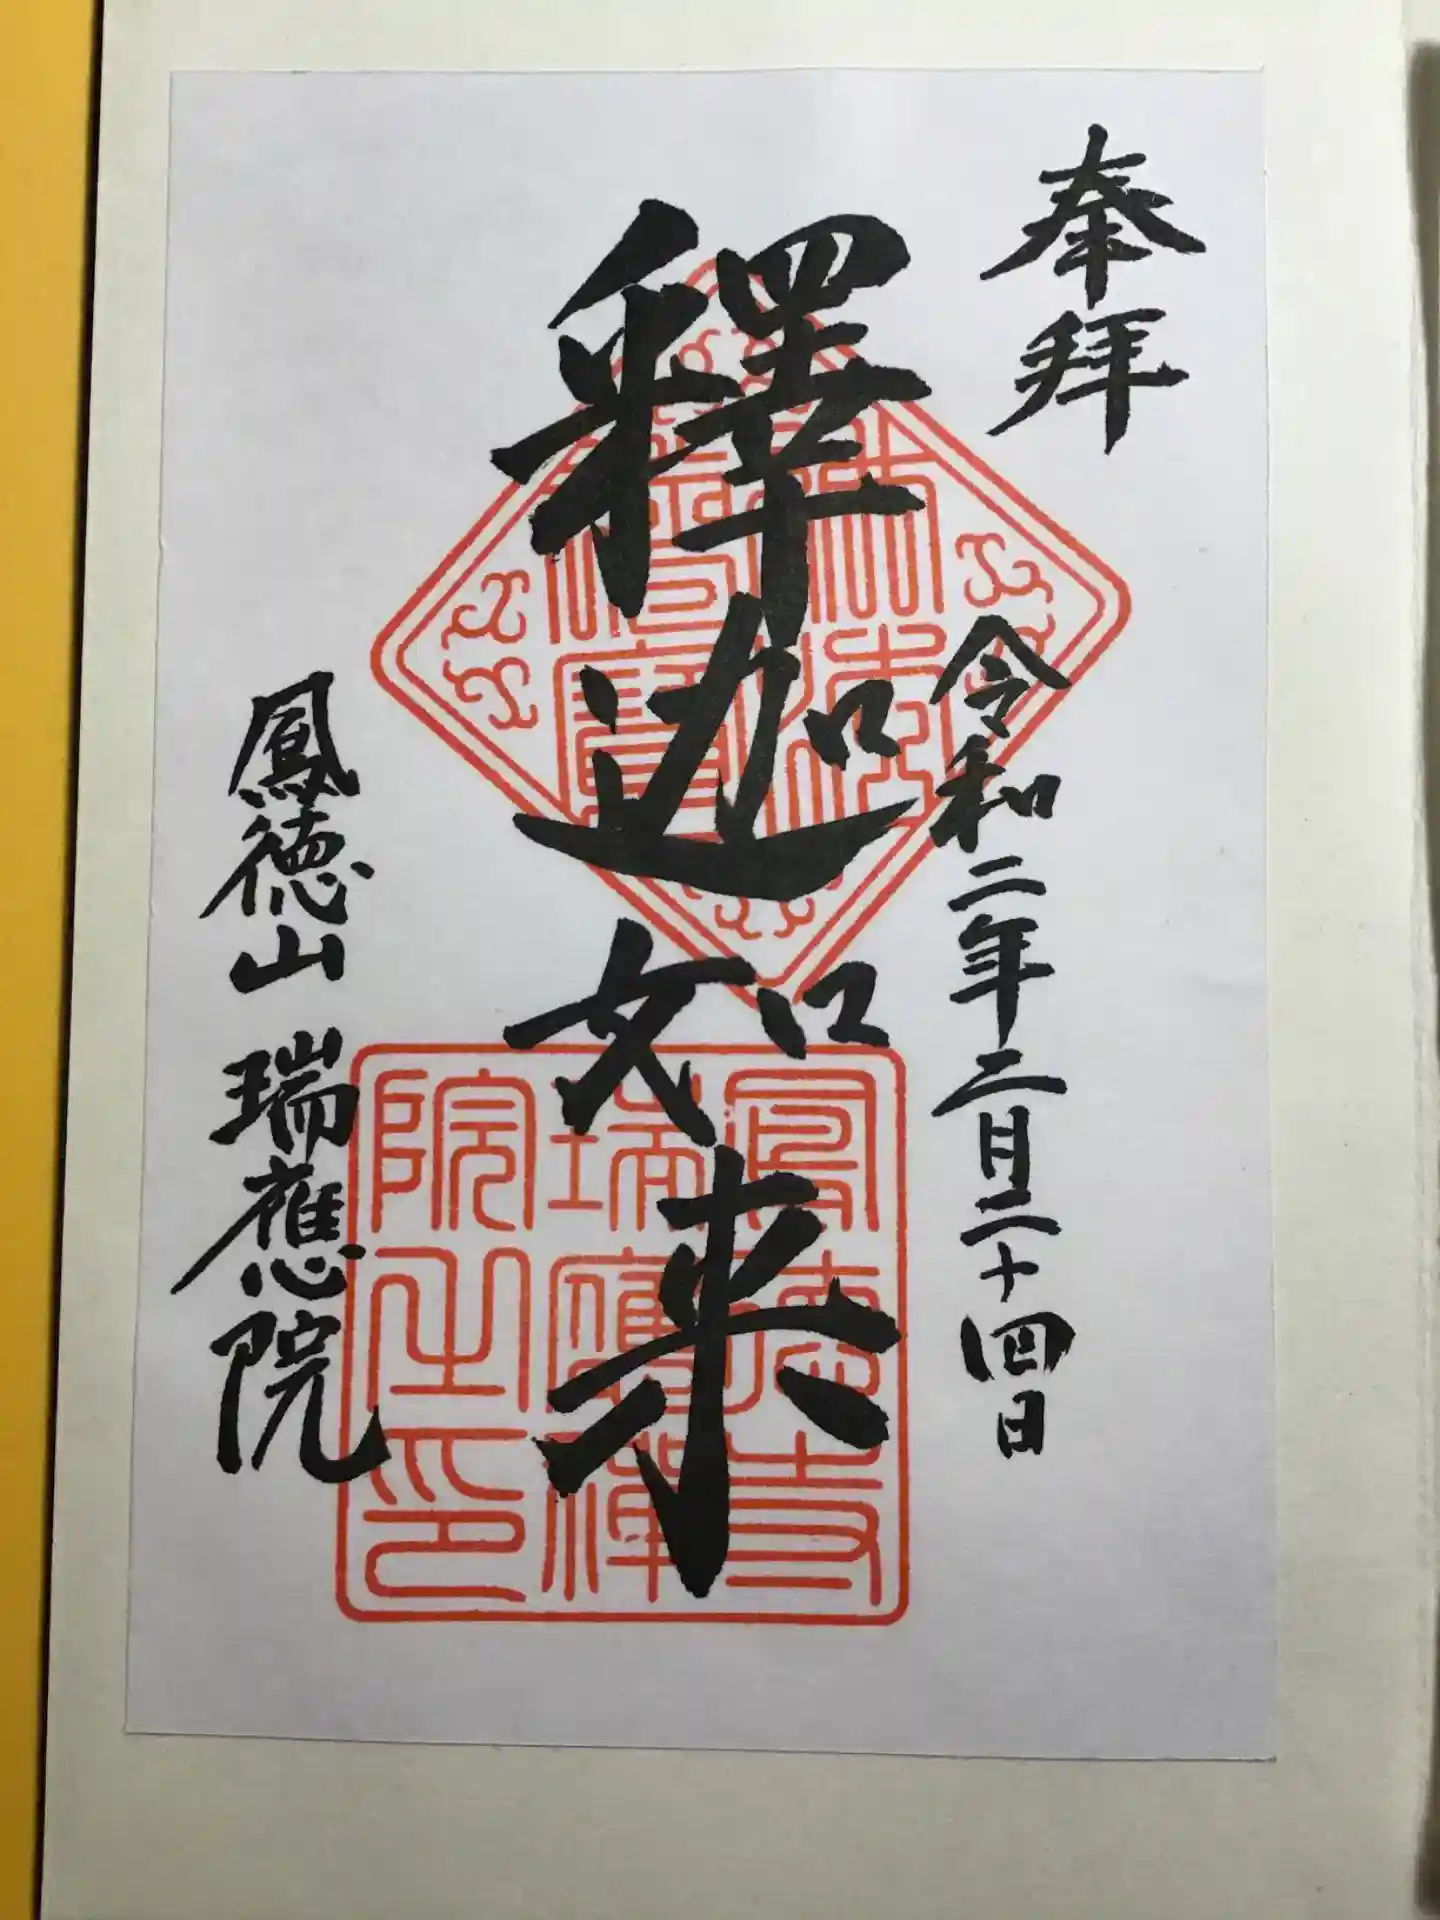 奉拝
令和二年二月二十四日
釋迦如来
鳳徳山 瑞應院
佛法僧寶
鳳德寺
瑞應禪
院之印